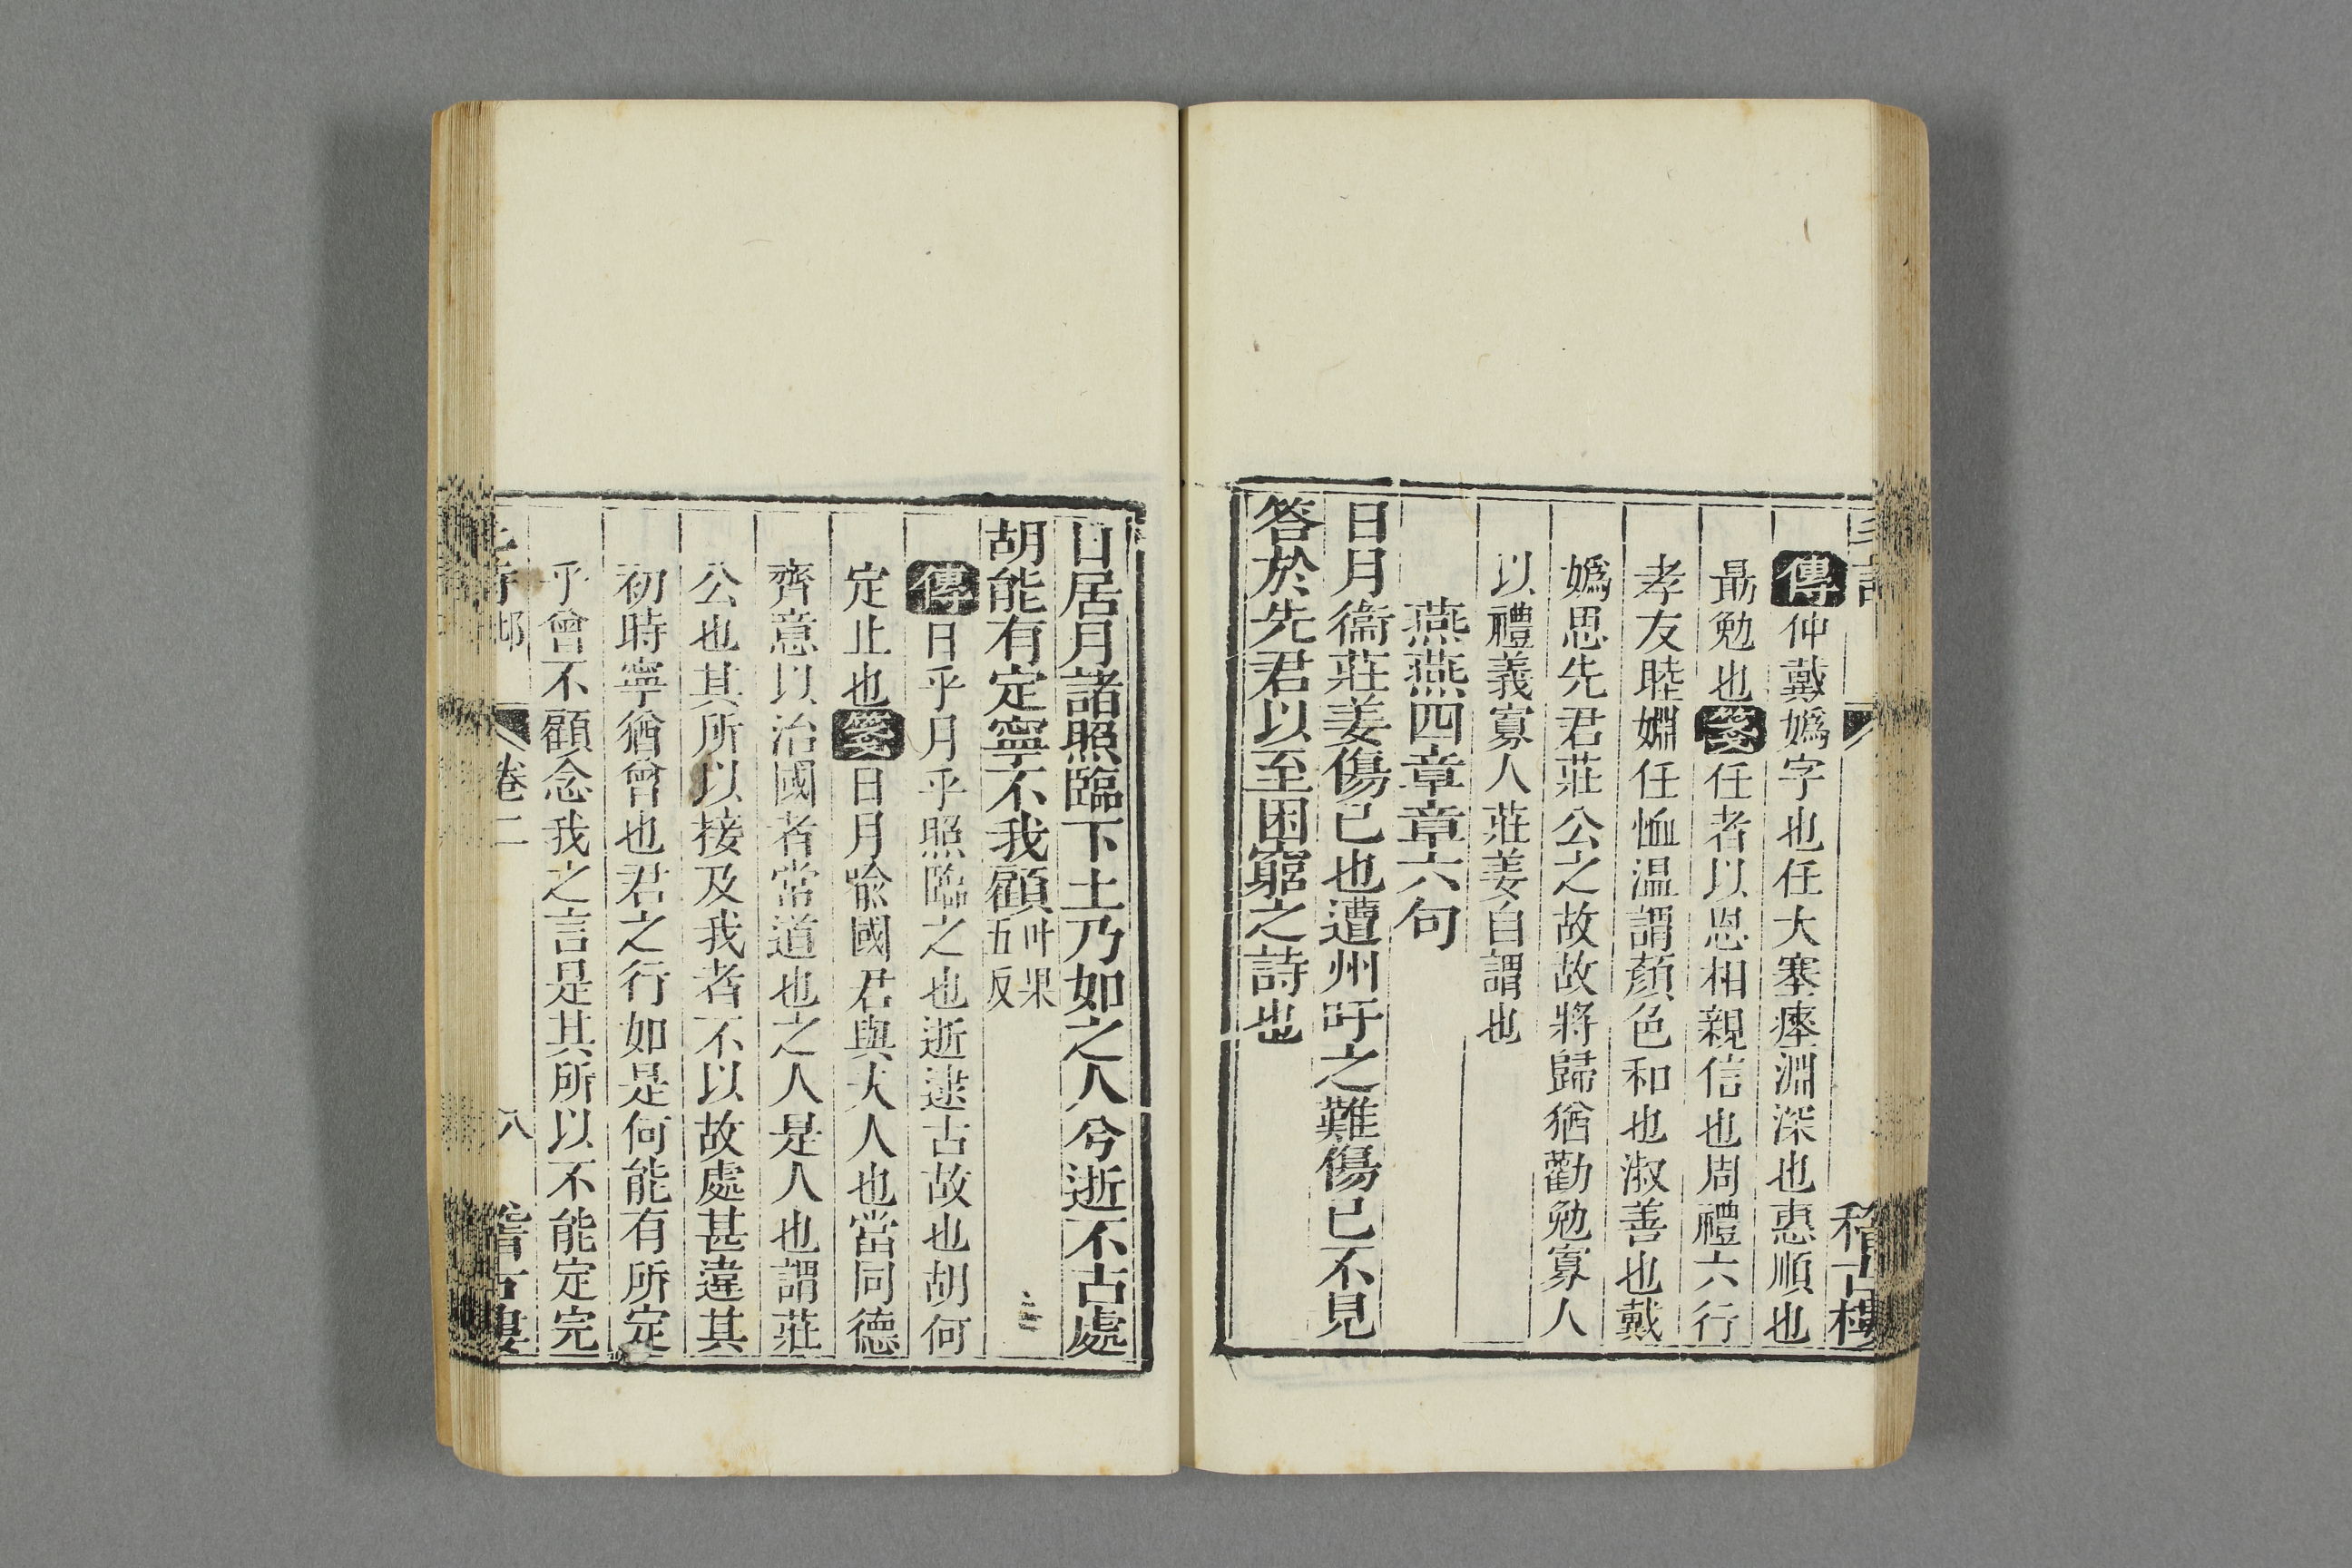 毛詩
稽古樓
傳仲戴嬀字也任大塞瘞淵深也惠順也
勗勉也箋任者以恩相親信也周禮六行
孝友睦婣任恤温謂顏色和也淑善也戴
嬀思先君莊公之故故將歸猶勸勉寡人
以禮義寡人莊姜自謂也
燕燕四章章六句
日月衞莊姜傷已也遭州吁之難傷已不見
答於先君以至困窮之詩也
日居月諸照臨下土乃如之人兮逝不古處
胡能有定寧不我顧叶果五反
傳日乎月乎照臨之也逝逮古故也胡何
定止也箋日月喻國君與夫人也當同德
齊意以治國者常道也之人是人也謂莊
公也其所以接及我者不以故處甚違其
初時寧猶曾也君之行如是何能有所定
乎曾不顧念我之言是其所以不能定完
邶
卷二
八
稽古樓